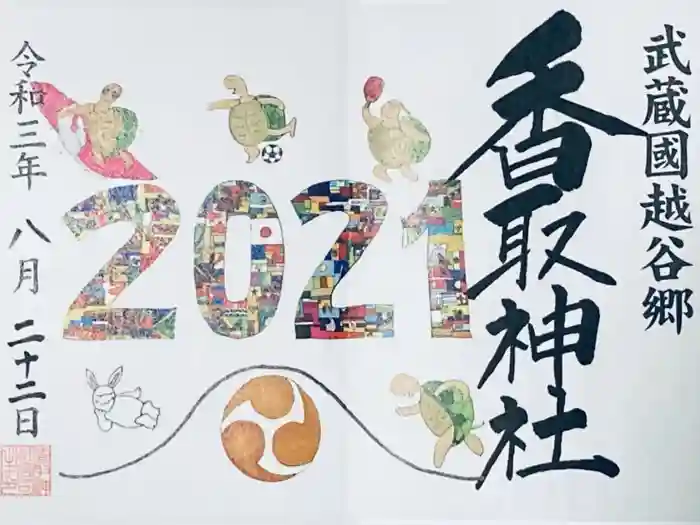 武蔵國越谷郷
香取神社
2021
令和三年 八月 二十二日